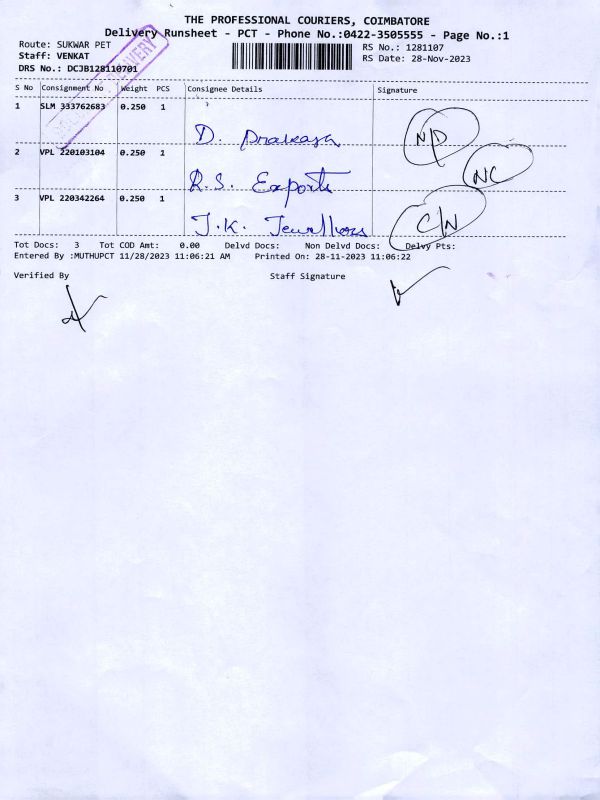 THE PROFESSIONAL COURIERS, COIMBATORE
Delivery Runsheet - PCT - Phone No.:0422-3505555 - Page No.:1
Route: SUKWAR PET
RS No.: 1281107
Staff: VENKAT
RS Date: 28-Nov-2023
DRS No.: DCJB128110701
DELIVERY
S No Consignment No Weight PCS Consignee Details Signature
1 SLM 333762683 0.250 1
D. Prakash N/D
2 VPL 220103104 0.250 1
R.S. Exports NC
3 VPL 220342264 0.250 1
J.K. Jewellers C/N
Tot Docs: 3 Tot COD Amt: 0.00 Delvd Docs: Non Delvd Docs: Delvy Pts:
Entered By :MUTHUPCT 11/28/2023 11:06:21 AM Printed On: 28-11-2023 11:06:22
Verified By Staff Signature